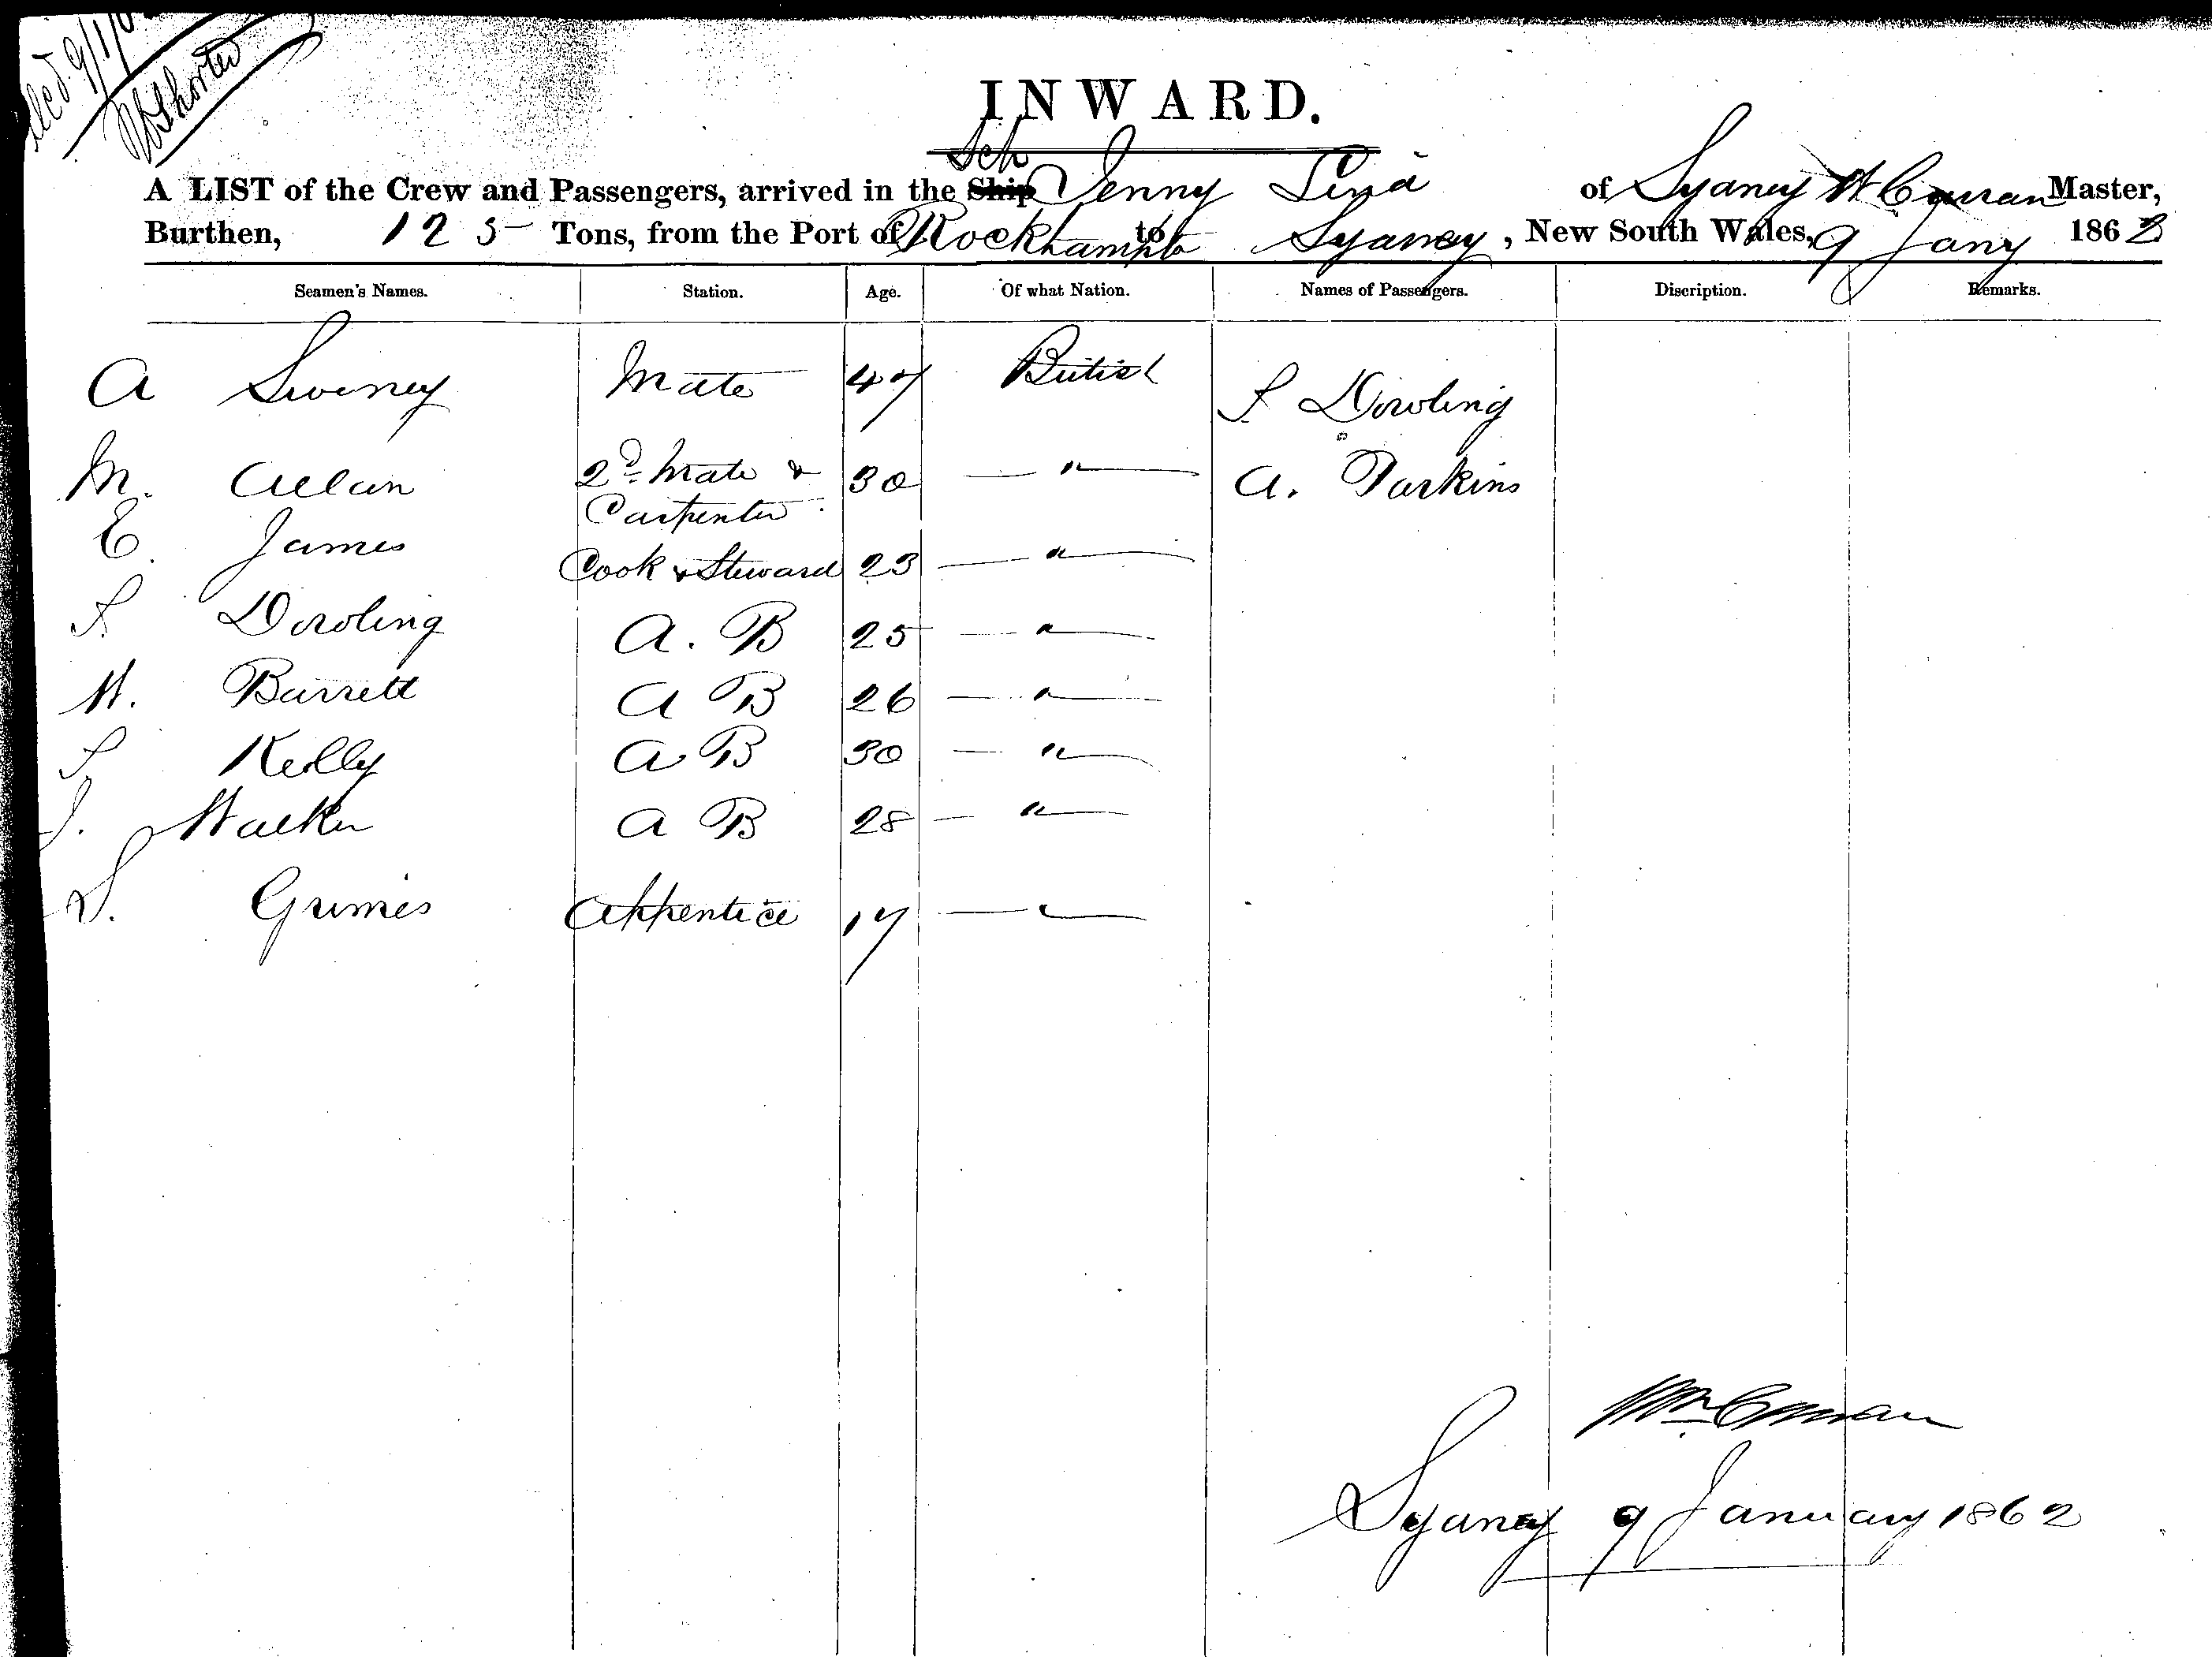 W Shorter
INWARD.
Sch
A LIST of the Crew and Passengers, arrived in the Ship Jenny Lind of Sydney W Curran Master,
Burthen, 125 Tons, from the Port of Rockhampt to Sydney, New South Wales, 9 Jany 1862
Seamen's Names. Station. Age. Of what Nation. Names of Passengers. Discription. Remarks.
A Swiney Mate 47 British S. Dowling
M. Allan 2d Mate & 30 — " — A. Parkins
Carpenter
E. James Cook & Steward 23 — " —
S. Dowling A. B 25 — " —
W. Barrett A B 26 — " —
S Kelly A B 30 — " —
J. Walker A B 28 — " —
S. Grimes Apprentice 17 — " —
Wm Curran
Sydney 9 January 1862